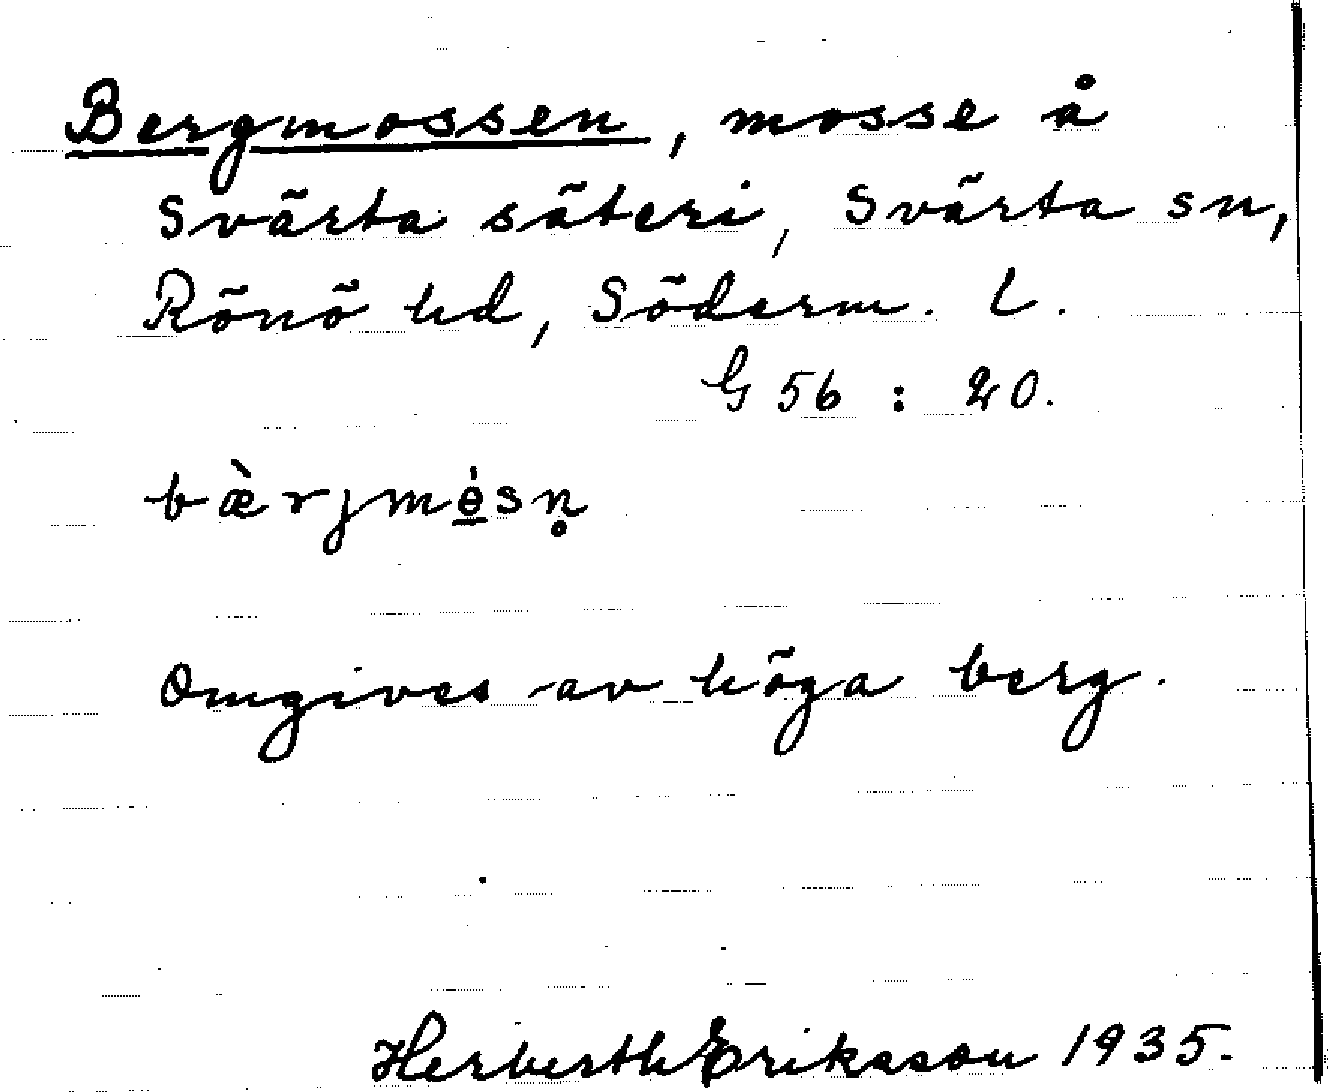 Bergmossen, mosse å
Svärta säteri, Svärta sn,
Rönö hd, Söderm. L.
G 56 : 20.
bæ̀rjmɵ̲́sn̥
Omgives av höga berg.
Herberth Eriksson 1935.